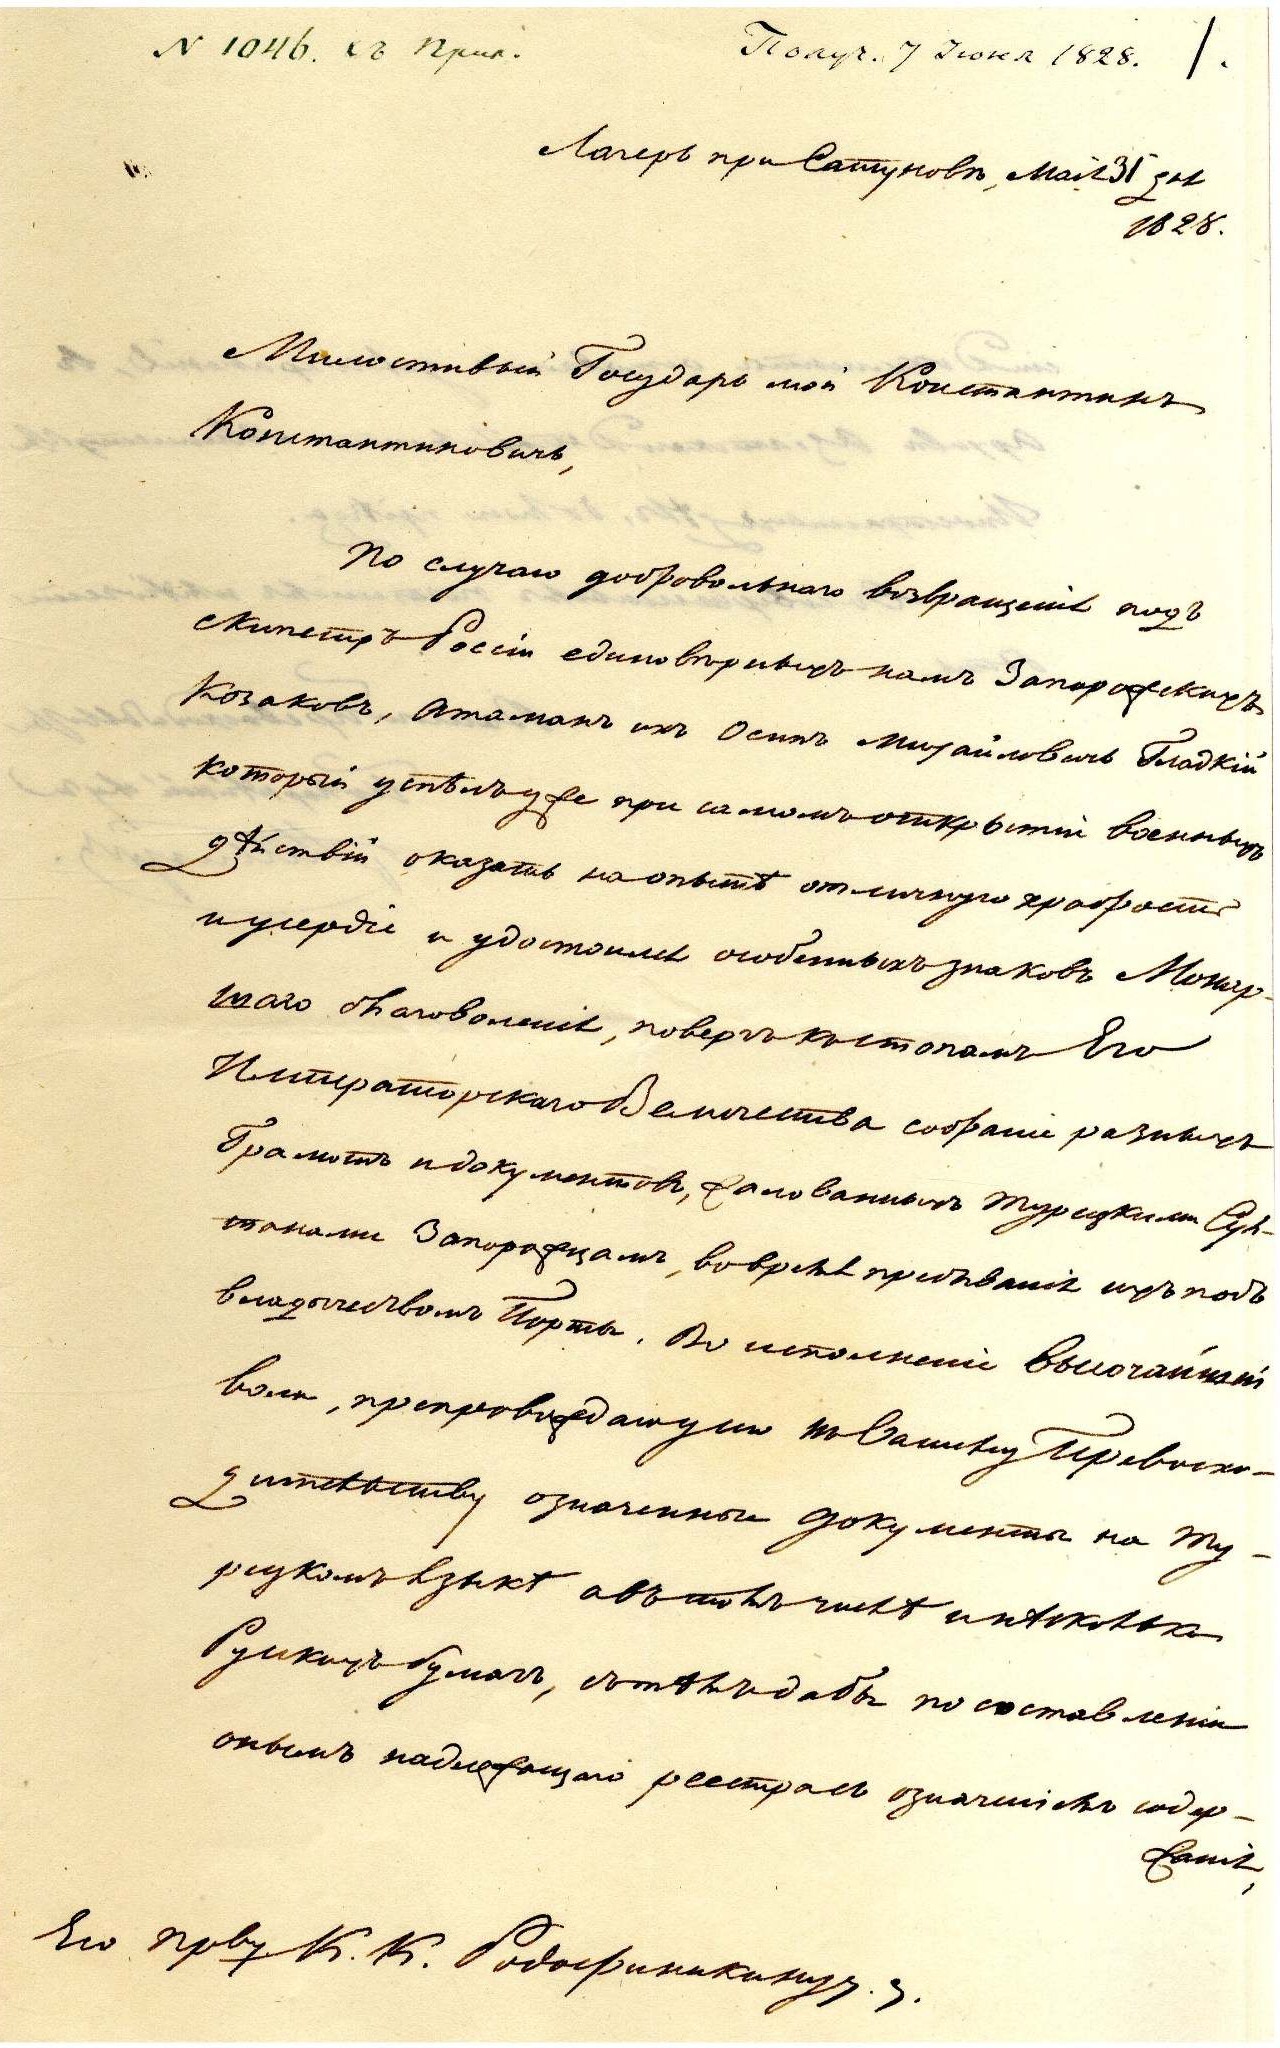 N 1046. съ Прил.
Получ. 7 Іюня 1828. 1.
Лагерь при Сатуновѣ, Маія 31 дня
1828.
Милостивый Государь мой Константинъ
Константиновичъ,
По случаю добровольнаго возвращенія подъ
скипетръ Россіи единовѣрныхъ намъ Запорожскихъ
Козаковъ, Атаманъ ихъ Осипъ Михайловичъ Гладкій
который успѣлъ уже при самомъ открытіи военныхъ
дѣйствій оказать на опытѣ отличную храбрость
и усердіе и удостоился особенныхъ знаковъ Монар-
шаго благоволенія, повергъ къ стопамъ Его
Императорскаго Величества собраніе разныхъ
Грамотъ и документовъ, жалованныхъ Турецкими Сул-
танами Запорожцамъ, во время пребыванія ихъ подъ
владычествомъ Порты. Во исполненіе Высочайшей
воли, препровождаю у сего къ Вашему Превосхо-
дительству означенные документы на Ту-
рецкомъ языкѣ а въ томъ числѣ и нѣсколько
Рускихъ бумагъ, съ тѣмъ дабы по составленіи
онымъ надлежащаго реестра съ означеніемъ содер-
жанія,
Его прву К. К. Родофиникину.